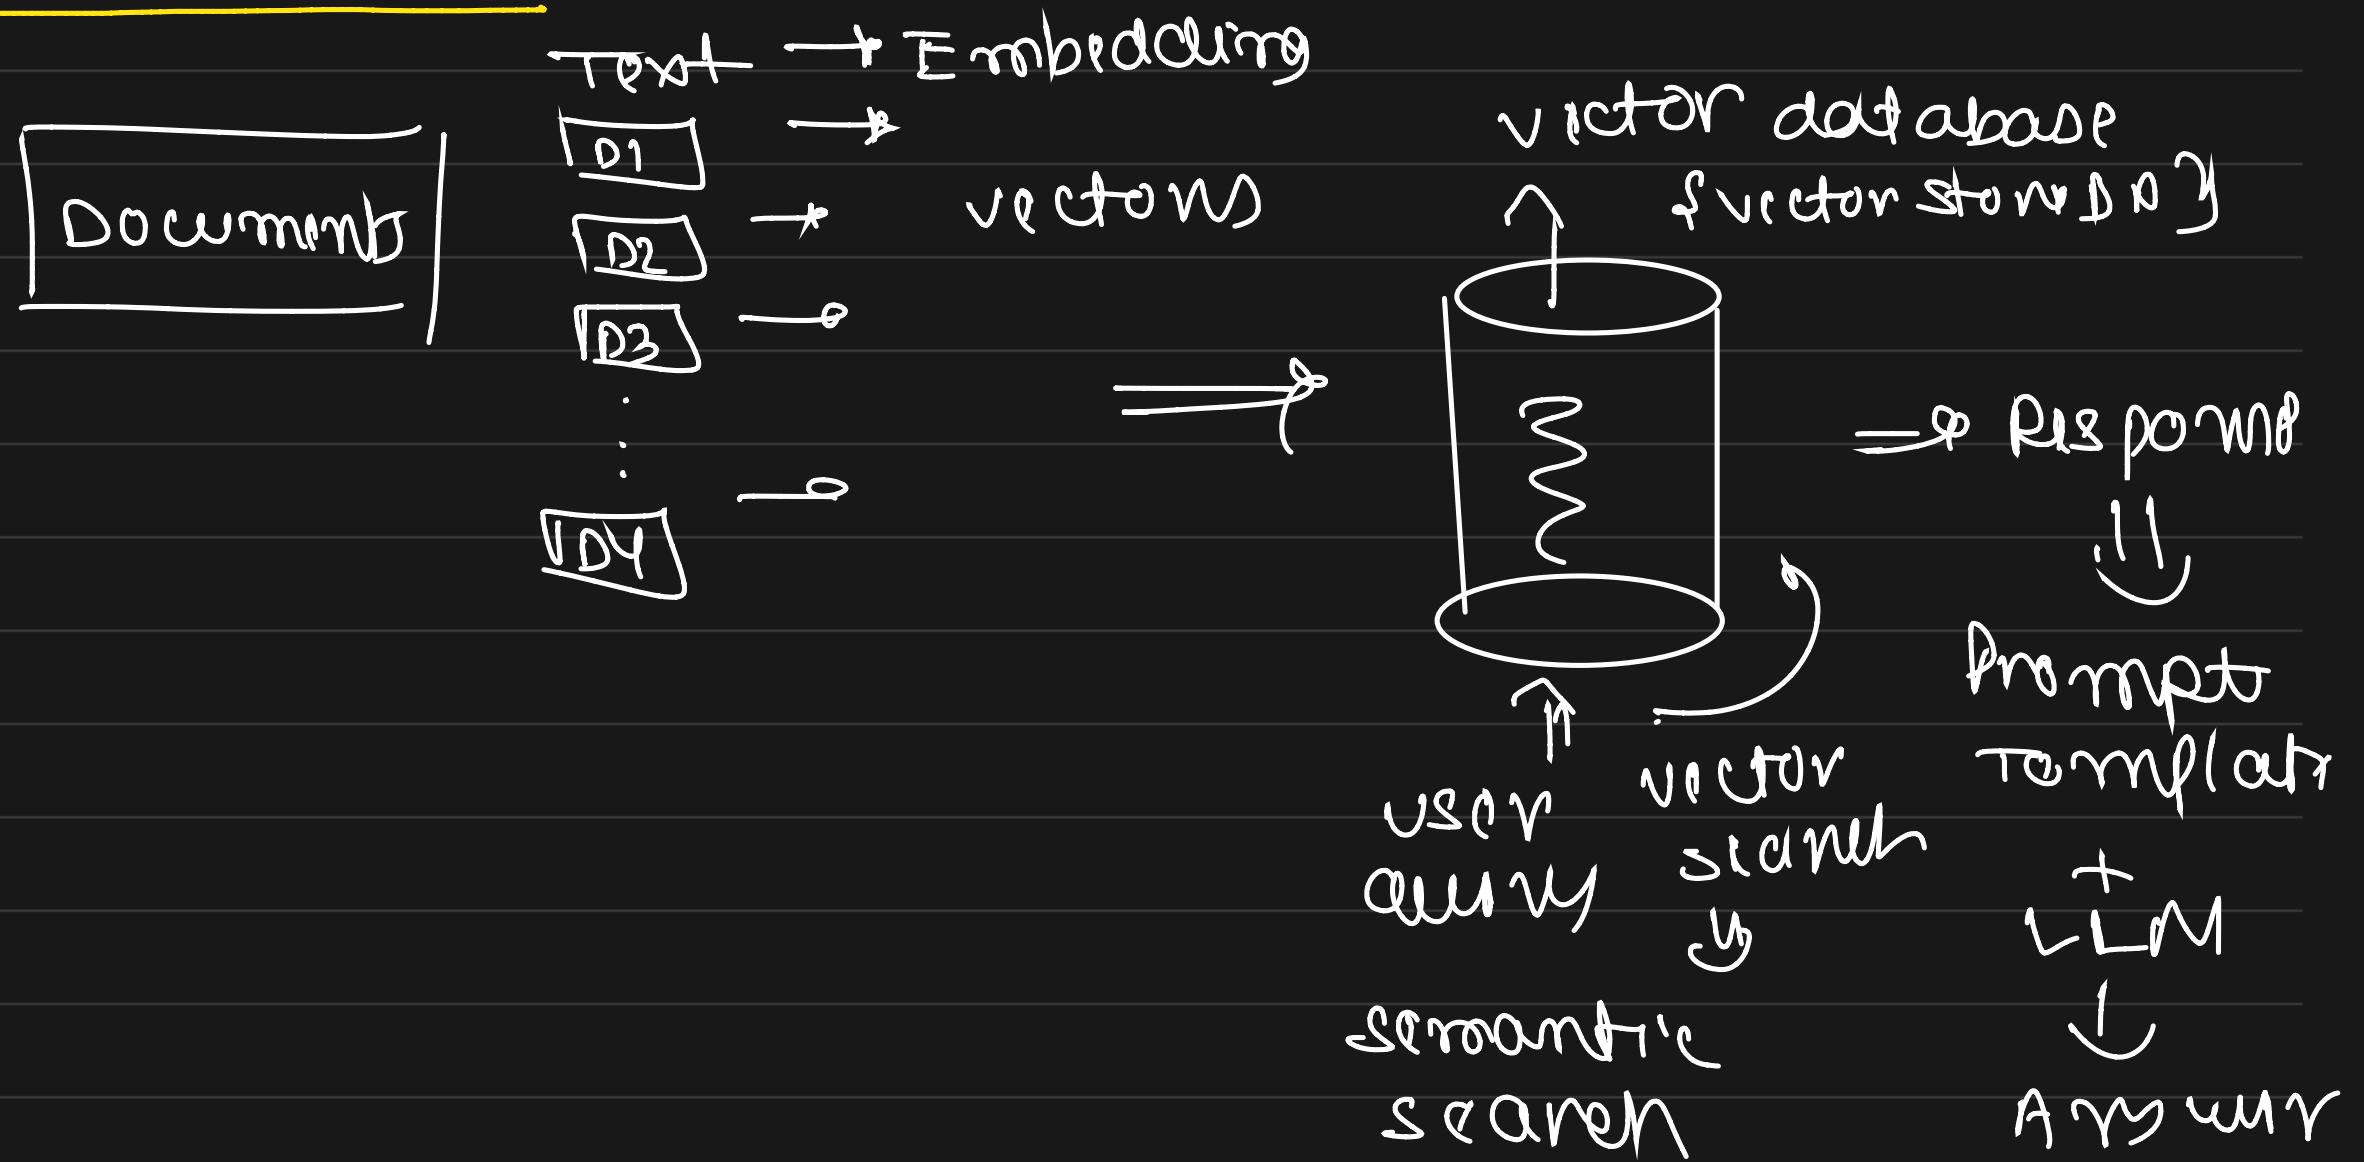 Text → Embedding
Documents
D1
D2
D3
D4
vectors
vector database
{vector store DB}
Response
Prompt
Template
+
LLM
Answer
user
query
vector
search
semantic
search